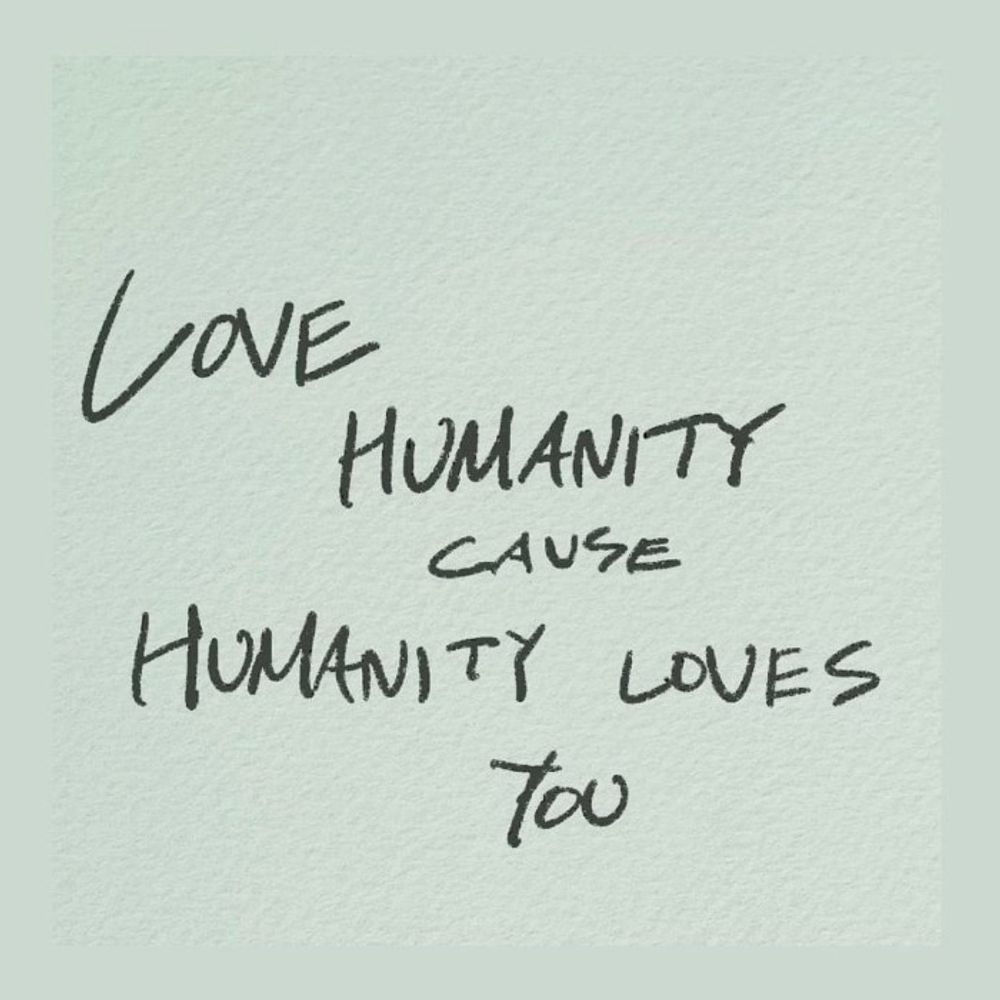 LOVE
HUMANITY
CAUSE
HUMANITY LOVES
YOU